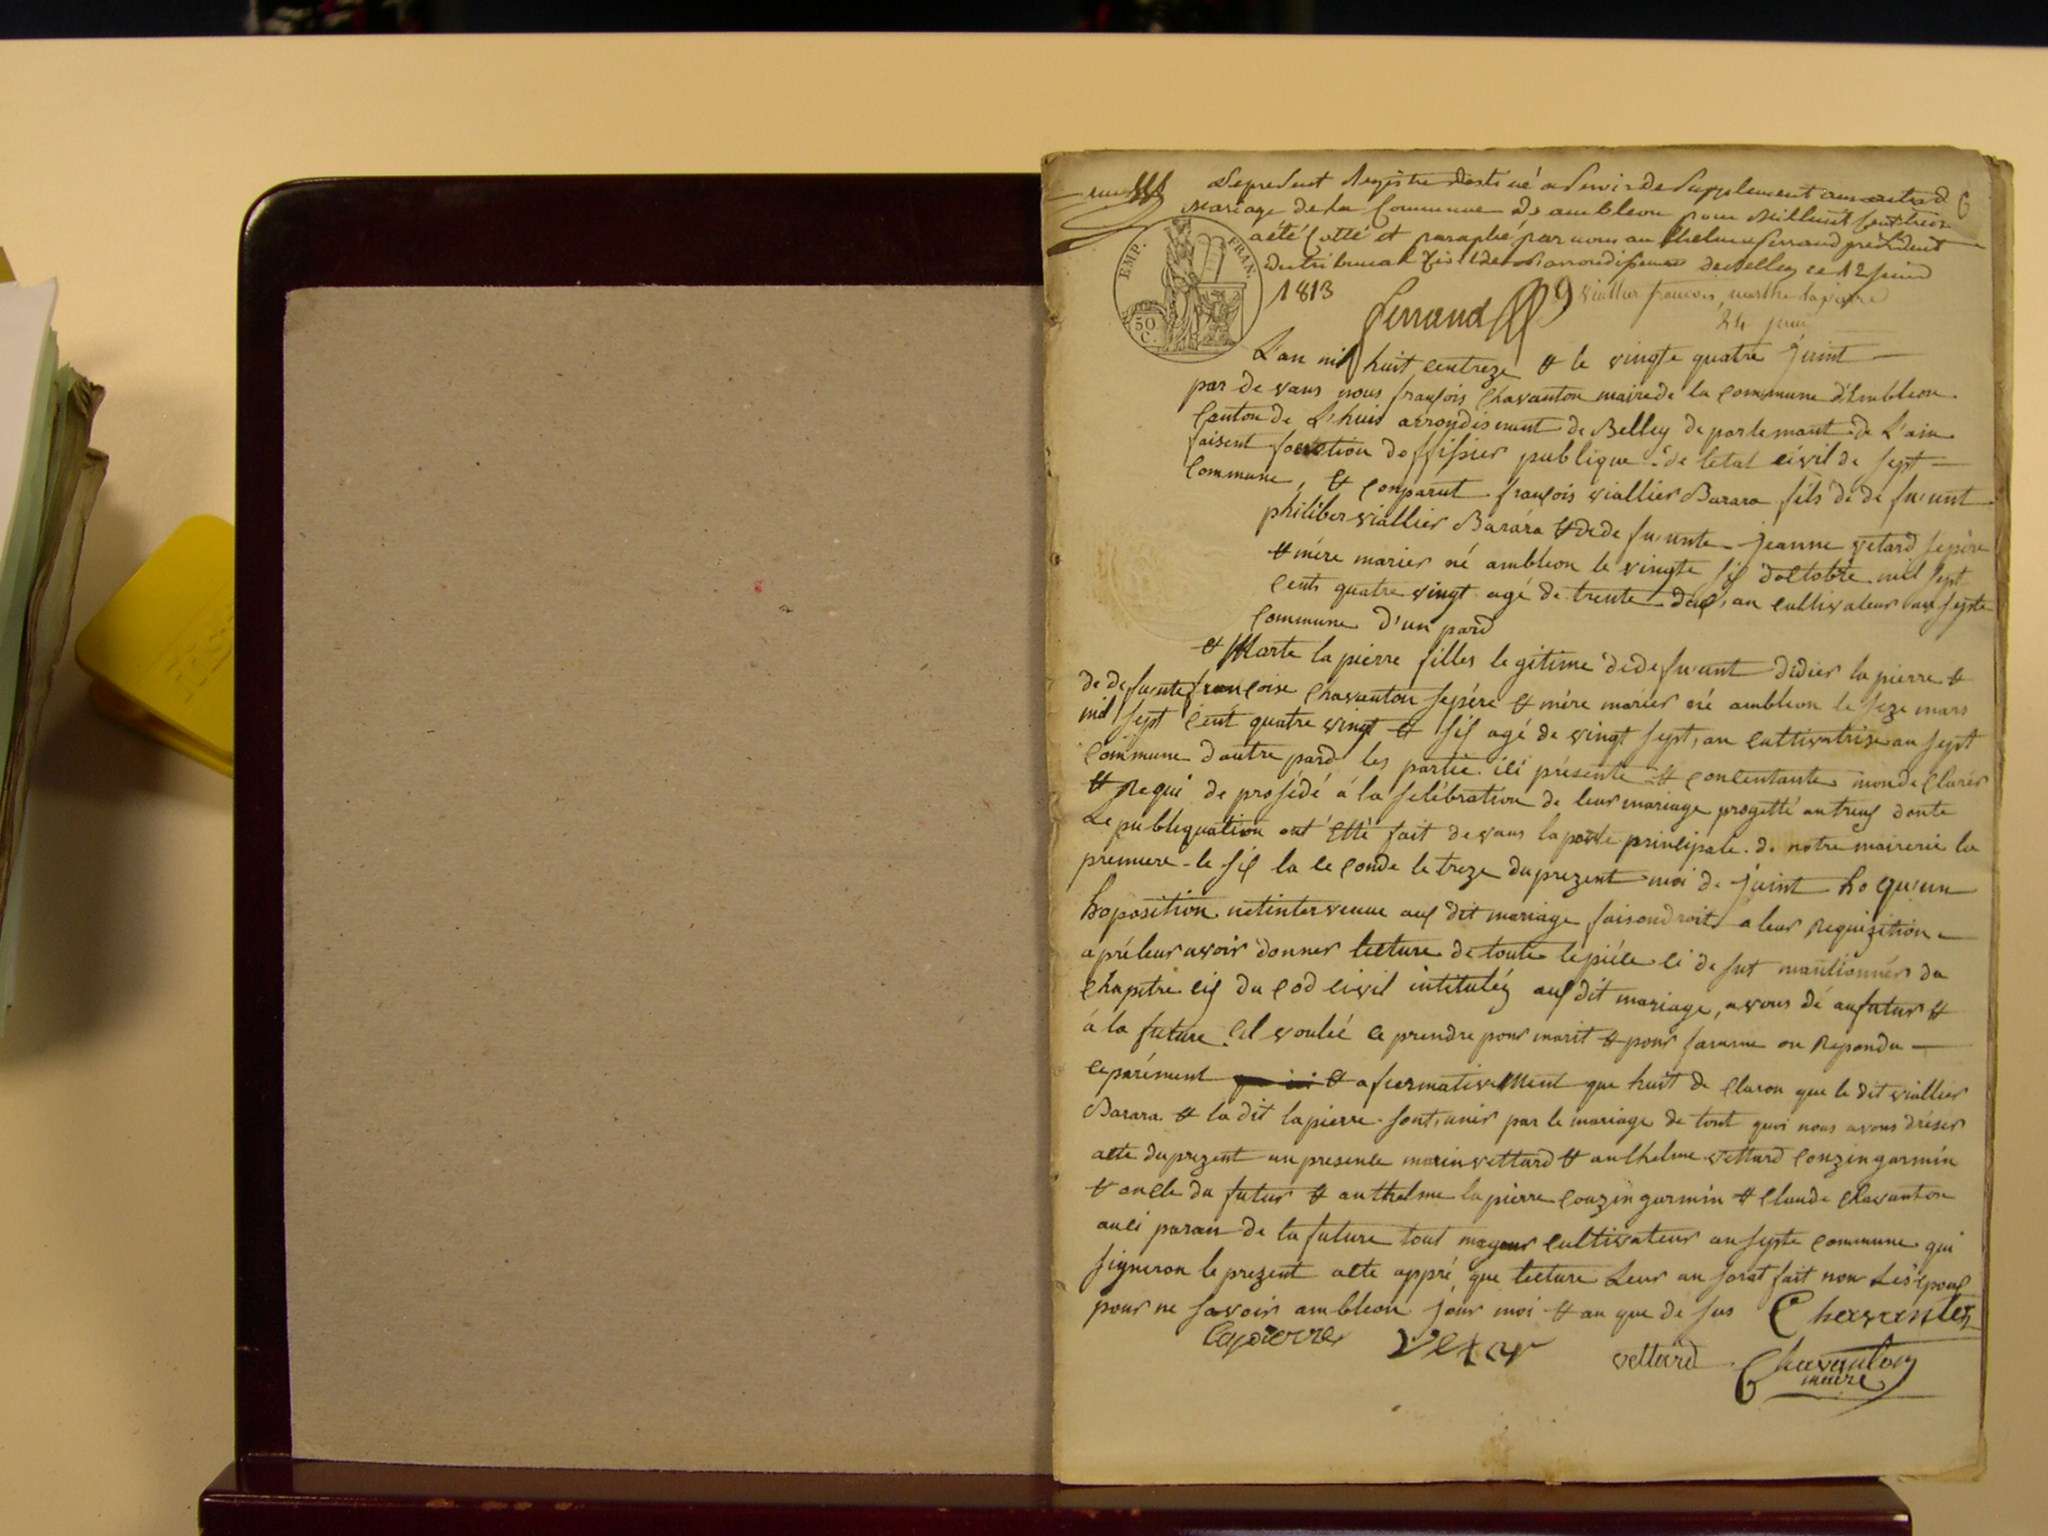 Le present Registre destiné a servir de supplement aux actes de 6
Mariage de la Commune de ambleon pour mil huit cent treize
a été Cotté et paraphé par nous anthelme ferrand président
du tribunal de l'arrondissement de Belley ce 12 juin
1813
EMP. FRAN.
50 C.
ferrand
viallier françois, marthe lapierre
24 juin
L'an mil huit centreze & le vingte quatre juint
par de vans nous françois Chavanton maire de la commune d'Embleon
Canton de L'huis arrondisment de Belley de partemant de L'ain
faisent fonction doffisier publique de letat civil de sept
Commune, & conparut françois viallier Barara fils de de fu'unt
philiber viallier Barara & de de fu'unte jeanne vetard se père
& mére marier né ambleon le vingte sis doctobre mil sept
cents quatre vingt agé de trente deus an cultivateur au septe
commune d'un pard
& Marte la pierre filles legitime de defu'unt didier la pierre &
de defu'unte françoise chavanton se pére & mére marier né ambleon le seze mars
mil sept cent quatre vingt & sis agé de vingt sept an cultivatrise au sept
commune dautre pard les partie ici présente & concentante mon declarér
& Requi de prosédé á la selébration de leur mariage progetté antreus donte
Le publiquation ont étté fait devans la porte principale de notre mairerie la
premiere le sis la ceconde le treze du prezent moi de juint ho qu'un
hoposition netintervenue aus dit mariage faison droit a leur Requizition
apré leur avoir donner lecture de toute le piéce ci desut mantionnér du
chapitre cis du cod civil intitulés aus dit mariage, avons dé au futur &
á la future cil voulié ce prendre pour marit & pour famme on Repondu
ceparément & afirmativement que huit de claron que le dit viallier
Barara & la dit lapierre sont unir par le mariage de tout quoi nous avons dréser
acte du prezent an presence marin vettard & anthelme vettard couzin garmin
& oncle du futur & anthelme lapierre couzin garmin & claude chavanton
auci paran de la future tout mageur cultivateur au septe commune qui
signeron le prezent acte appré que lecture Leur an sorat fait non Les épous
pour ne savoir ambleon jour moi & an que de sus Chavanton
Lapierre Vetar vettard Chavanton
maire